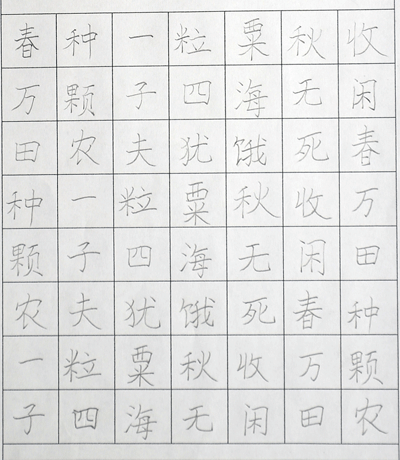 春种一粒粟秋收
万颗子四海无闲
田农夫犹饿死春
种一粒粟秋收万
颗子四海无闲田
农夫犹饿死春种
一粒粟秋收万颗
子四海无闲田农